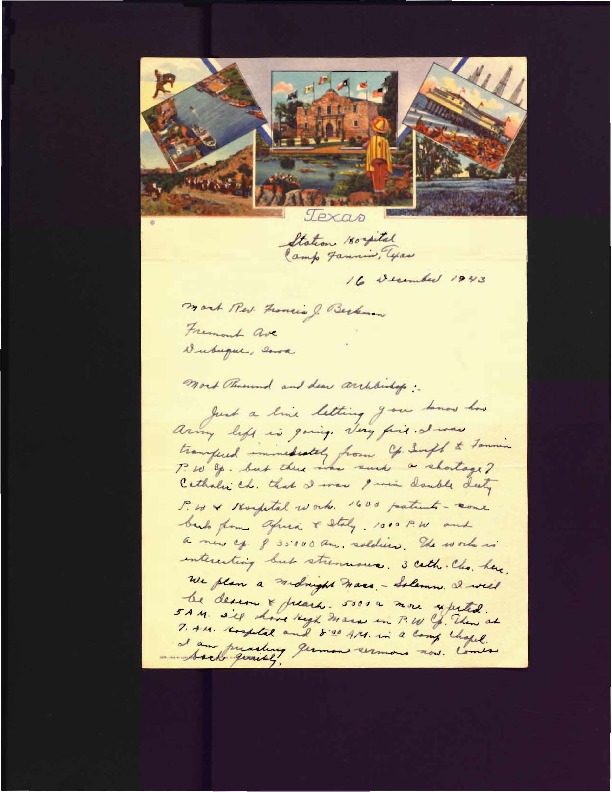 Texas
Station Hospital
Camp Fannin, Texas
16 December 1943
Most Rev. Francis J. Beckman
Fremont Ave
Dubuque, Iowa
Most Reverend and dear Archbishop:-
Just a line letting you know how
Army life is going. Very fine. I was
transfered immediately from Cp. Swift to Fannin
P.W Cp. but there was such a shortage of
Catholic Ch. that I was given double duty
P.W & Hospital work. 1600 patients - some
back from Africa & Italy. 1000 P.W and
a new cp. of 35000 Am. soldiers. The work is
interesting but strenuous. 3 Cath. Chs. here.
We plan a Midnight Mass. - Solemn. I will
be deacon & preach. 5000 or more expected.
5 A.M. I'll have High Mass in P.W Cp. Then at
7. A.M. Hospital and 8:00 A.M. in a Camp Chapel.
I am preaching German sermons now. Comes
back quickly.